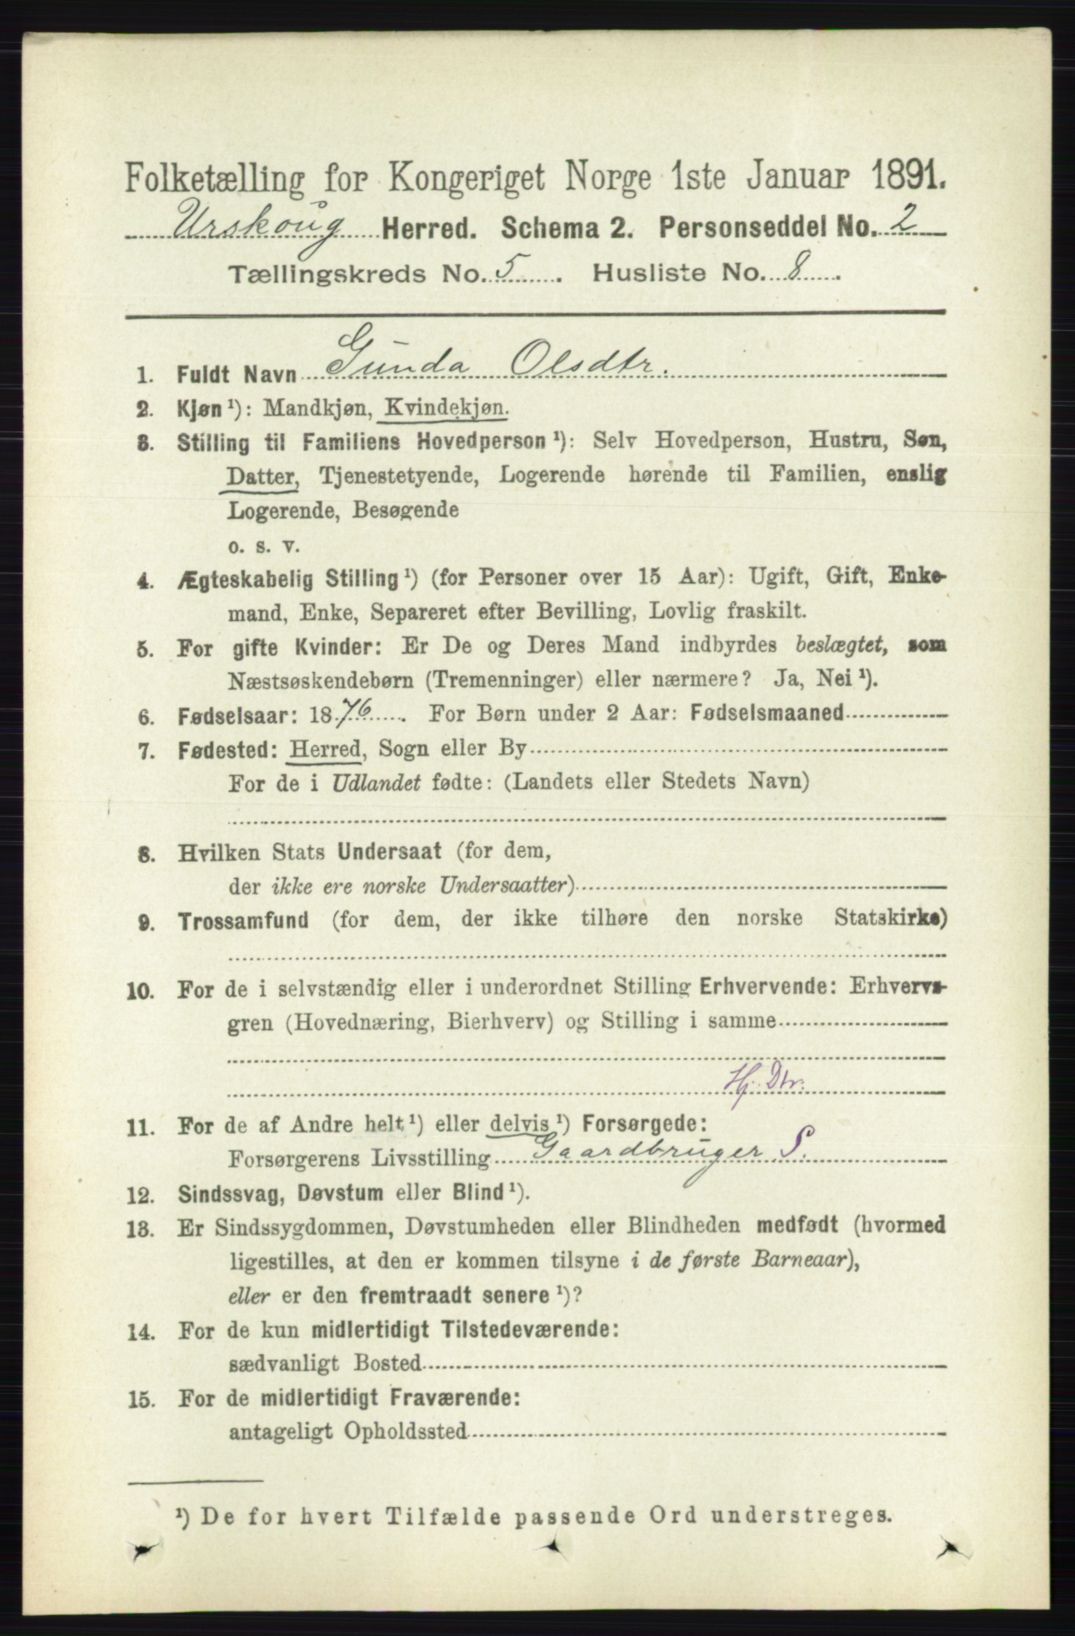 Folketælling for Kongeriget Norge 1ste Januar 1891.
Urskoug Herred. Schema 2. Personseddel No. 2
Tællingskreds No. 5. Husliste No. 8.
1. Fuldt Navn Gunda Olsdtr.
2. Kjøn ¹): Mandkjøn, Kvindekjøn.
3. Stilling til Familiens Hovedperson ¹): Selv Hovedperson, Hustru, Søn,
Datter, Tjenestetyende, Logerende hørende til Familien, enslig
Logerende, Besøgende
o. s. v.
4. Ægteskabelig Stilling ¹) (for Personer over 15 Aar): Ugift, Gift, Enke-
mand, Enke, Separeret efter Bevilling, Lovlig fraskilt.
5. For gifte Kvinder: Er De og Deres Mand indbyrdes beslægtet, som
Næstsøskendebørn (Tremenninger) eller nærmere? Ja, Nei ¹).
6. Fødselsaar: 1876. For Børn under 2 Aar: Fødselsmaaned
7. Fødested: Herred, Sogn eller By
For de i Udlandet fødte: (Landets eller Stedets Navn)
8. Hvilken Stats Undersaat (for dem,
der ikke ere norske Undersaatter)
9. Trossamfund (for dem, der ikke tilhøre den norske Statskirke)
10. For de i selvstændig eller i underordnet Stilling Erhvervende: Erhvervs-
gren (Hovednæring, Bierhverv) og Stilling i samme
Hj. Dtr.
11. For de af Andre helt ¹) eller delvis ¹) Forsørgede:
Forsørgerens Livsstilling Gaardbruger S.
12. Sindssvag, Døvstum eller Blind ¹).
13. Er Sindssygdommen, Døvstumheden eller Blindheden medfødt (hvormed
ligestilles, at den er kommen tilsyne i de første Barneaar),
eller er den fremtraadt senere ¹)?
14. For de kun midlertidigt Tilstedeværende:
sædvanligt Bosted
15. For de midlertidigt Fraværende:
antageligt Opholdssted
¹) De for hvert Tilfælde passende Ord understreges.